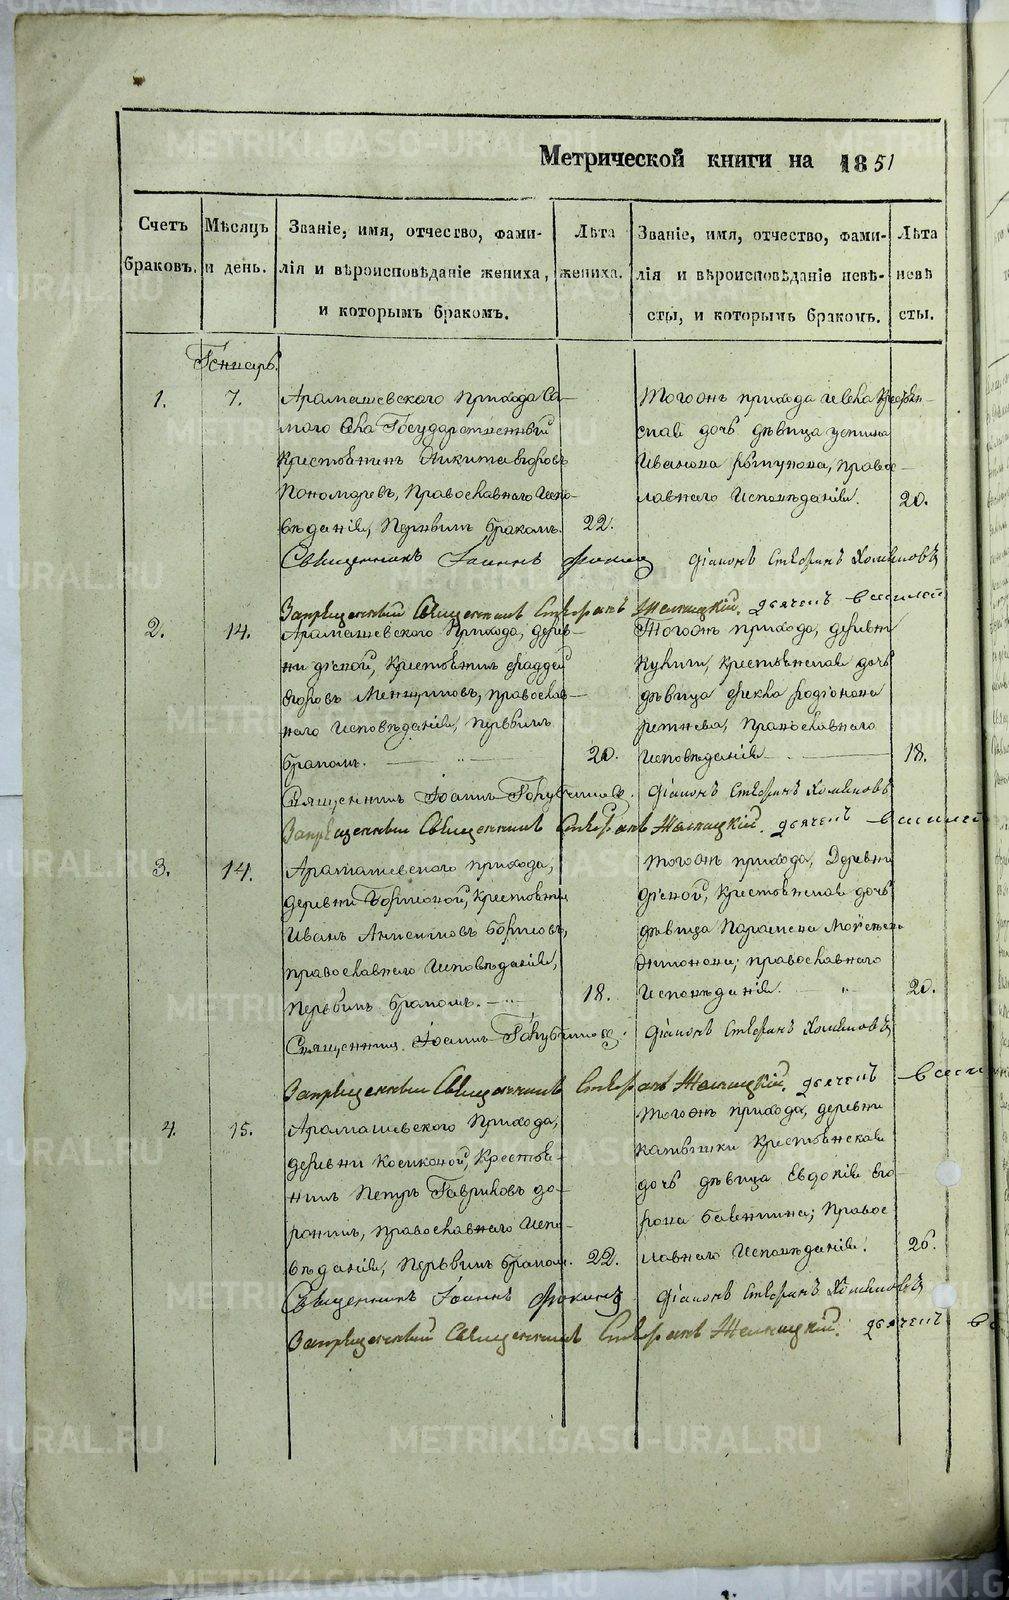 METRIKI.GASO-URAL.RU
Метрической книги на 1851
Счетъ браковъ.
Мѣсяцъ и день.
Званіе, имя, отчество, фами-
лія и вѣроисповѣданіе жениха,
и которымъ бракомъ.
Лѣта жениха.
Званіе, имя, отчество, фами-
лія и вѣроисповѣданіе невѣ-
сты, и которымъ бракомъ.
Лѣта невѣ сты.
Генварь.
1.
7.
Арамашевского Прихода Са-
мого Села Государственный
Крестьянинъ Никита Егоровъ
Пономаревъ, Православнаго Испо-
вѣданія, Первымъ бракомъ.
22.
Тогожъ прихода и села Крестьян-
ская дочь дѣвица
Иванова, Право-
славнаго Исповѣданія.
20.
Священникъ Іоаннъ Фокинъ
Діаконъ Стефанъ Хомяковъ
Запрещенный Священникъ Стефанъ Желницкій. дьячекъ Василей
2.
14.
Арамашевского Прихода, дерев-
ни, Крестьянинъ Фаддей
Егоровъ Меншиковъ, Православ-
наго Исповѣданія, Первымъ
бракомъ.
20.
Тогожъ прихода, деревни
Кукиги, Крестьянская дочь
дѣвица Фекла Родіонова
Православнаго
Исповѣданія
18.
Священникъ Іоаннъ Голубчиковъ.
Діаконъ Стефанъ Хомяковъ
Запрещенный Священникъ Стефанъ Желницкій. дьячекъ Василей
3.
14.
Арамашевского прихода,
деревни Борисовой, Крестьянинъ
Иванъ Анисимовъ Борисовъ,
православнаго Исповѣданія,
Первымъ бракомъ.
18.
Тогожъ прихода, Деревни
Крестьянская дочь
дѣвица Парамена Моисѣева
Антонова; православнаго
Исповѣданія.
20.
Священникъ Іоаннъ Голубчиковъ.
Діаконъ Стефанъ Хомяковъ
Запрещенный Священникъ Стефанъ Желницкій. дьячекъ
4.
15.
Арамашевского Прихода,
деревни Косиковой, Крестья-
нинъ Петръ Гавриловъ До-
ронинъ, православнаго Испо-
вѣданія, Первымъ бракомъ.
22.
Тогожъ прихода, деревни
Катышки Крестьянская
дочь дѣвица Евдокія Его-
рова; Право-
славнаго Исповѣданія.
26.
Священникъ Іоаннъ Фокинъ
Діаконъ Стефанъ Хомяковъ
Запрещенный Священникъ Стефанъ Желницкій. дьячекъ